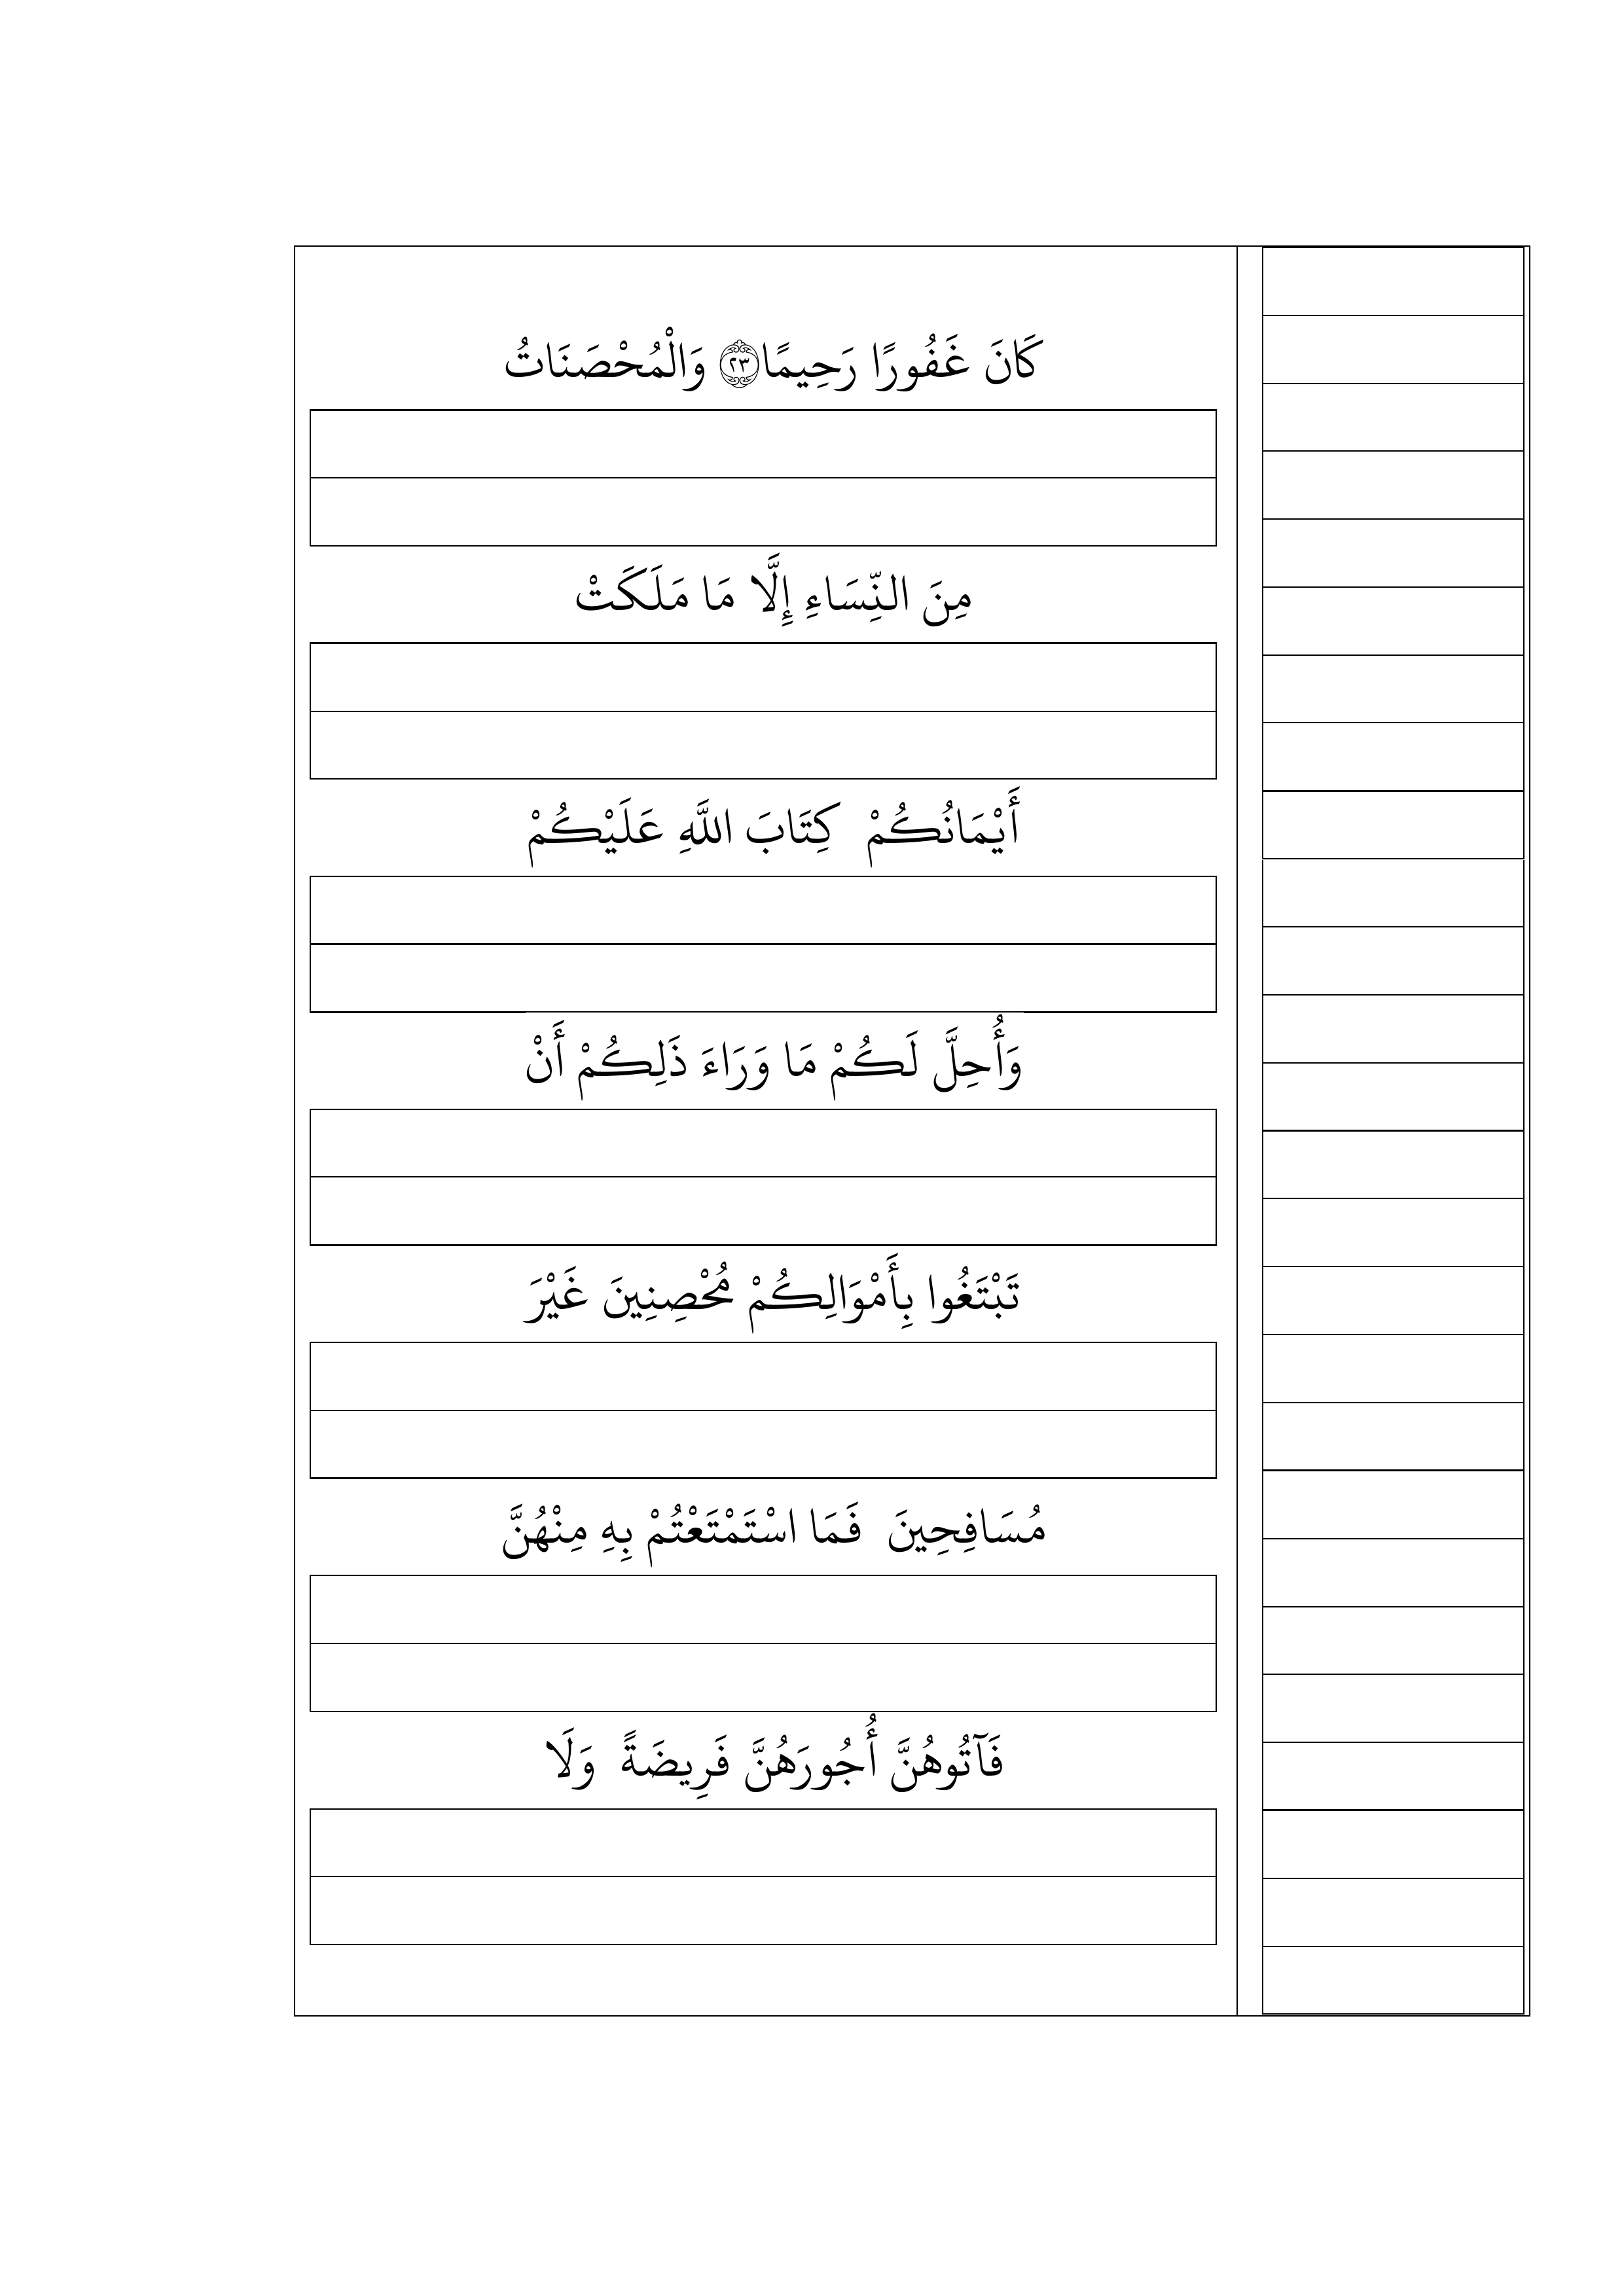 كَانَ غَفُورًا رَحِيمًا ﴿٢٣﴾ وَالْمُحْصَنَاتُ
مِنَ النِّسَاءِ إِلَّا مَا مَلَكَتْ
أَيْمَانُكُمْ كِتَابَ اللَّهِ عَلَيْكُمْ
وَأُحِلَّ لَكُمْ مَا وَرَاءَ ذَلِكُمْ أَنْ
تَبْتَغُوا بِأَمْوَالِكُمْ مُحْصِنِينَ غَيْرَ
مُسَافِحِينَ فَمَا اسْتَمْتَعْتُمْ بِهِ مِنْهُنَّ
فَآتُوهُنَّ أُجُورَهُنَّ فَرِيضَةً وَلَا